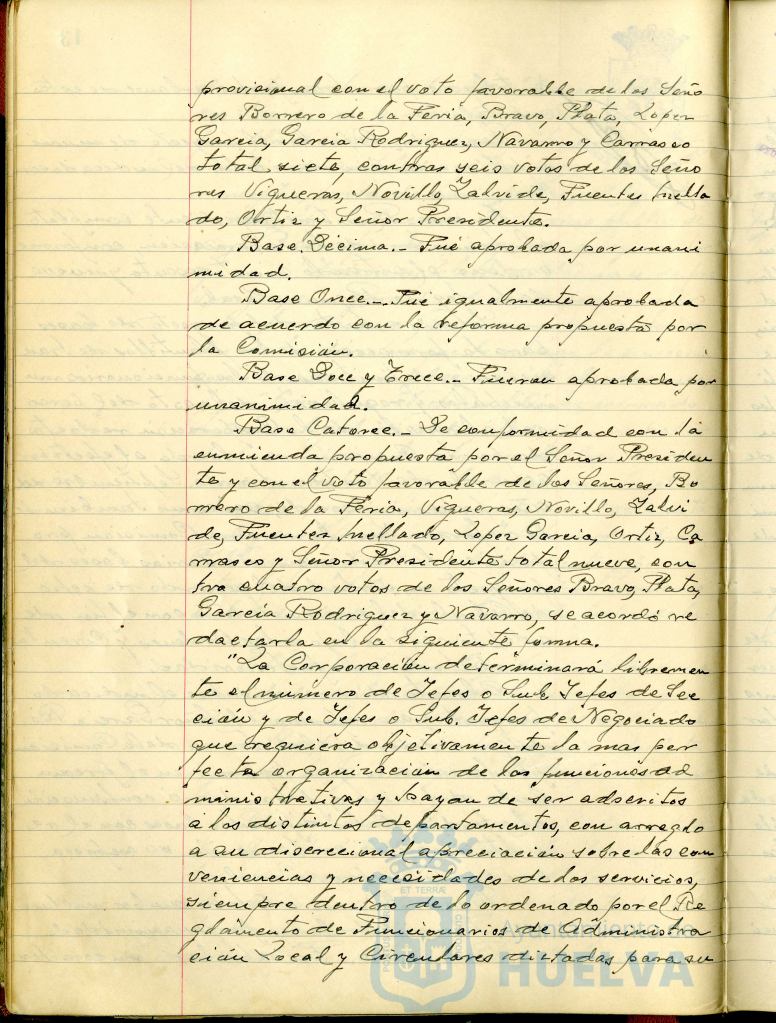 provisional con el voto favorable de los Seño
res Borrero de la Feria, Bravo, Plata, Lopez
Garcia, Garcia Rodriguez, Navarro y Carrasco
total siete, contras seis votos de los Seño
res Vigueras, Novillo, Zalvide, Fuentes Mella
do, Ortiz y Señor Presidente.
Base Décima.- Fué aprobada por unani
midad.
Base Once.- Fué igualmente aprobada
de acuerdo con la reforma propuesta por
la Comisión.
Base Doce y Trece.- Fueron aprobada por
unanimidad.
Base Catorce.- De conformidad con la
enmienda propuesta por el Señor Presiden
te y con el voto favorable de los Señores, Bo
rrero de la Feria, Vigueras, Novillo, Zalvi
de, Fuentes Mellado, Lopez Garcia, Ortiz, Ca
rrasco y Señor Presidente total nueve, con
tra cuatro votos de los Señores Bravo, Plata,
García Rodriguez y Navarro, se acordó re
dactarla en la siguiente forma.
"La Corporación determinará libremen
te el número de Jefes o Sub. Jefes de Sec
ción y de Jefes o Sub. Jefes de Negociado
que requiera objetivamente la mas per
fecta organización de las funciones ad
ministrativas y hayan de ser adscritos
a los distintos departamentos, con arreglo
a su discreccional apreciación sobre las con
veniencias y necesidades de los servicios,
siempre dentro de lo ordenado por el Re
glamento de Funcionarios de Administra
ción Local y Circulares dictadas para su
ET TERRAE
Ayuntamiento
HUELVA